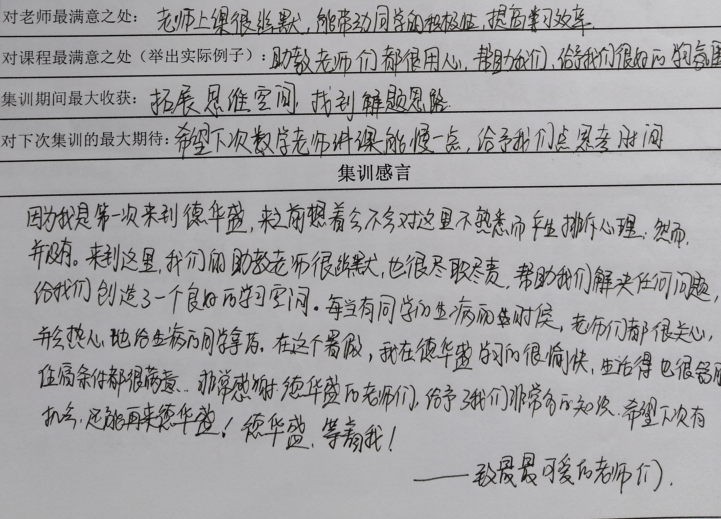 对老师最满意之处: 老师上课很幽默,能带动同学的积极性,提高学习效率.
对课程最满意之处(举出实际例子): 助教老师们都很用心,帮助我们,给予我们很好的学习氛围
集训期间最大收获: 拓展思维空间,找到解题思路.
对下次集训的最大期待: 希望下次数学老师讲课能慢一点,给予我们点思考时间
集训感言
因为我是第一次来到德华盛,来之前想着会不会对这里不熟悉而产生排斥心理.然而,
并没有。来到这里,我们的助教老师很幽默,也很尽职尽责,帮助我们解决任何问题,
给我们创造了一个良好的学习空间。每当有同学们生病的时候,老师们都很关心,
并会热心地给生病的同学拿药。在这个暑假,我在德华盛学习的很愉快,生活得也很舒服
住宿条件都很满意..非常感谢德华盛的老师们,给予了我们非常多的知识.希望下次有
机会,还能再来德华盛!德华盛,等着我!
——致最最可爱的老师们.